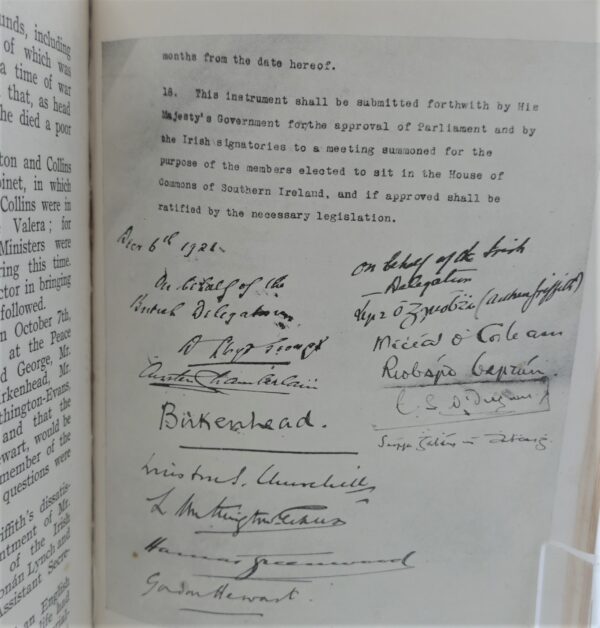 unds, including
of which was
a time of war
that, as head
he died a poor
ton and Collins
binet, in which
Collins were in
Valera; for
Ministers were
ring this time.
ctor in bringing
followed.
n October 7th,
at the Peace
d George, Mr.
irkenhead, Mr.
thington-Evans,
and that the
wart, would be
member of the
questions were
riffith's dissatis-
ntment of Mr.
of the Irish
onán Lynch and
Assistant Secre-
an English
life had
months from the date hereof.
18. This instrument shall be submitted forthwith by His
Majesty's Government for the approval of Parliament and by
the Irish signatories to a meeting summoned for the
purpose of the members elected to sit in the House of
Commons of Southern Ireland, and if approved shall be
ratified by the necessary legislation.
Decr 6th 1921
On behalf of the
British Delegation
D Lloyd George
Austen Chamberlain
Birkenhead.
Winston S. Churchill
L Worthington Evans
Hamar Greenwood
Gordon Hewart.
On behalf of the Irish
Delegation
(Arthur Griffith)
Mícheál Ó Coileáin
Riobárd Bartún